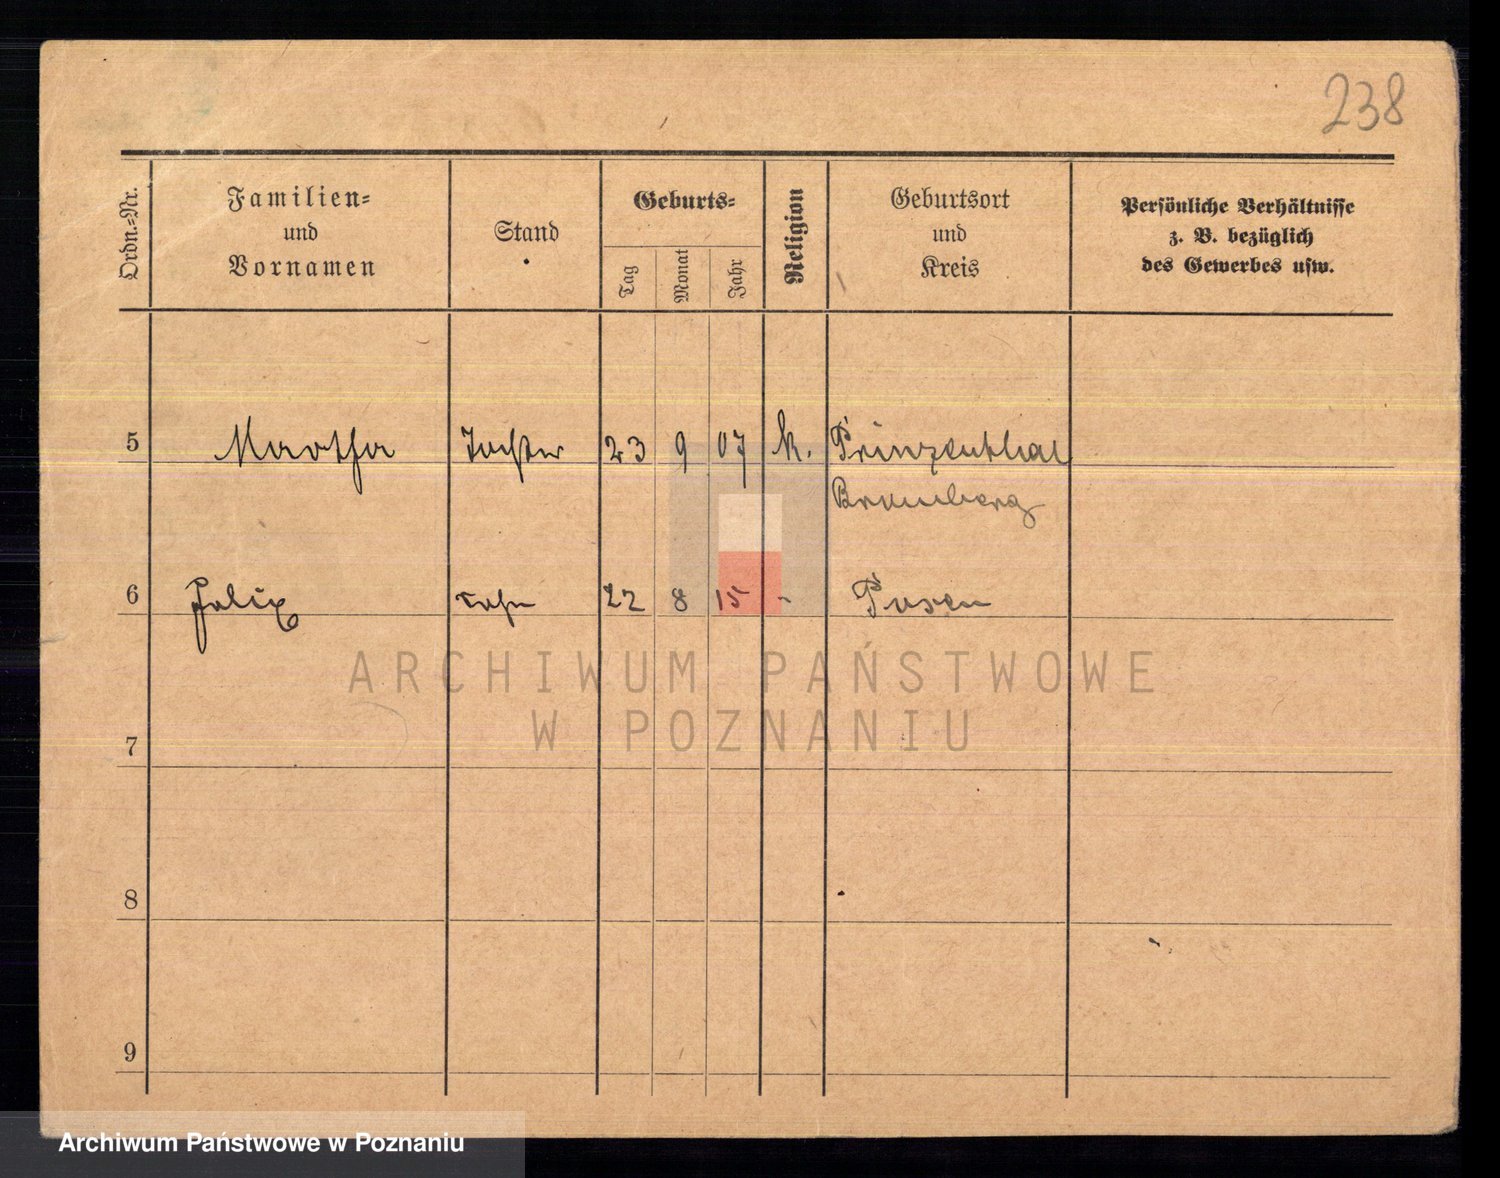 238
Ordn.-Nr.
Familien-
und
Vornamen
Stand
Geburts-
Tag
Monat
Jahr
Religion
Geburtsort
und
Kreis
Persönliche Verhältnisse
z. B. bezüglich
des Gewerbes usw.
5 Martha Tochter 23 9 07 k. Prinzenthal
Bromberg
6 Felix Sohn 22 8 15 " Posen
ARCHIWUM PAŃSTWOWE
W POZNANIU
7
8
9
Archiwum Państwowe w Poznaniu